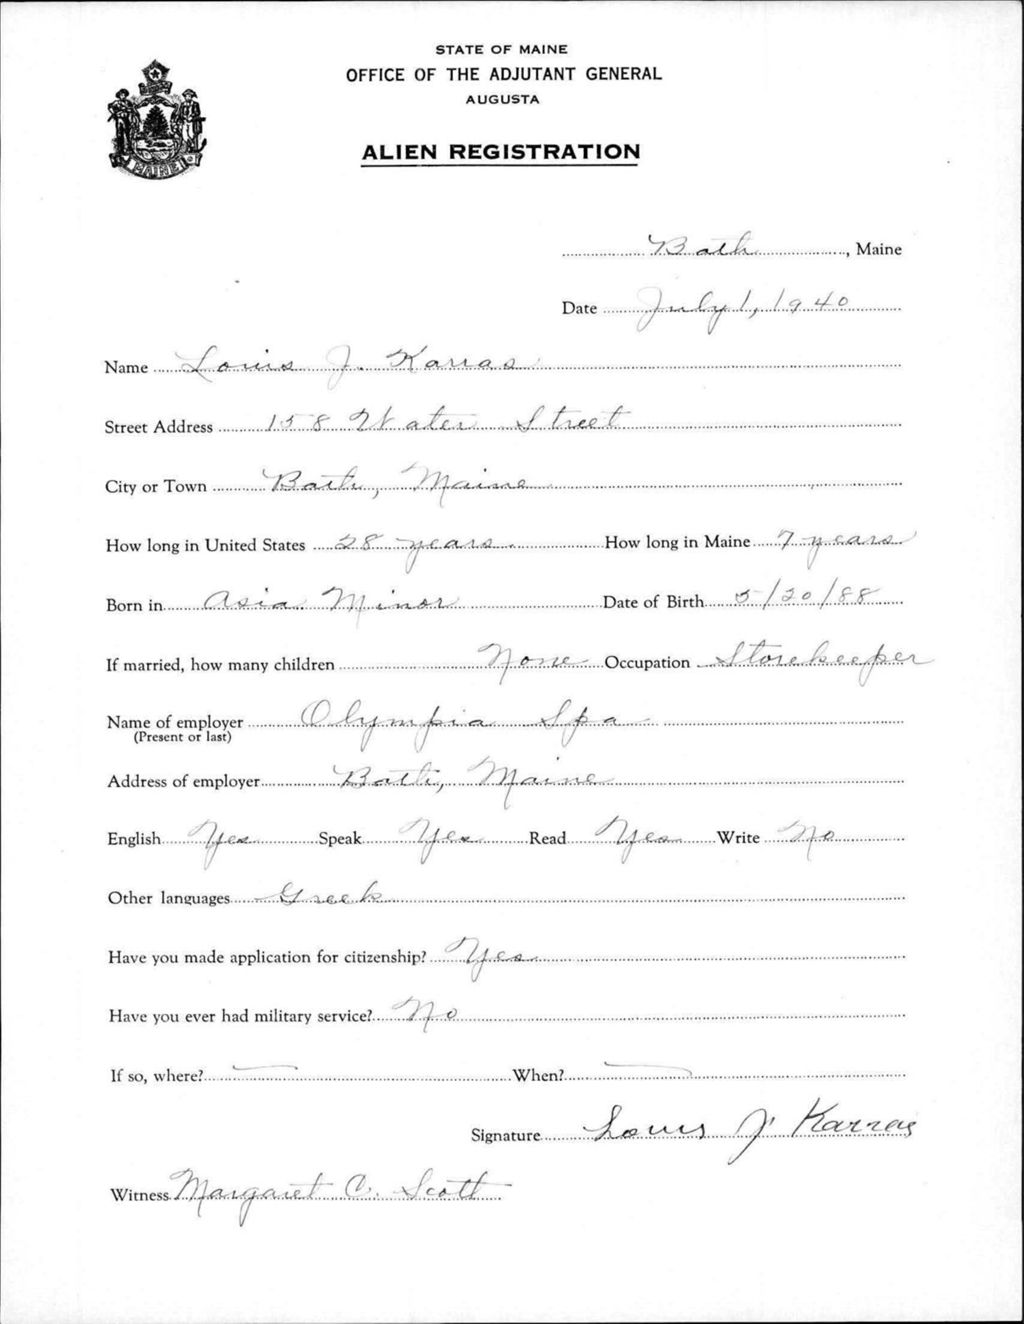 STATE OF MAINE
OFFICE OF THE ADJUTANT GENERAL
AUGUSTA
ALIEN REGISTRATION
MAINE
Bath, Maine
Date July 1, 1940
Name Louis J. Karras
Street Address 158 Water Street
City or Town Bath, Maine
How long in United States 28 years How long in Maine 7 years
Born in Asia Minor Date of Birth 5/20/88
If married, how many children None Occupation Storekeeper
Name of employer Olympia Spa
(Present or last)
Address of employer Bath, Maine
English Yes Speak Yes Read Yes Write No
Other languages Greek
Have you made application for citizenship? Yes
Have you ever had military service? No
If so, where? — When? —
Signature Louis J Karras
Witness Margaret C. Scott